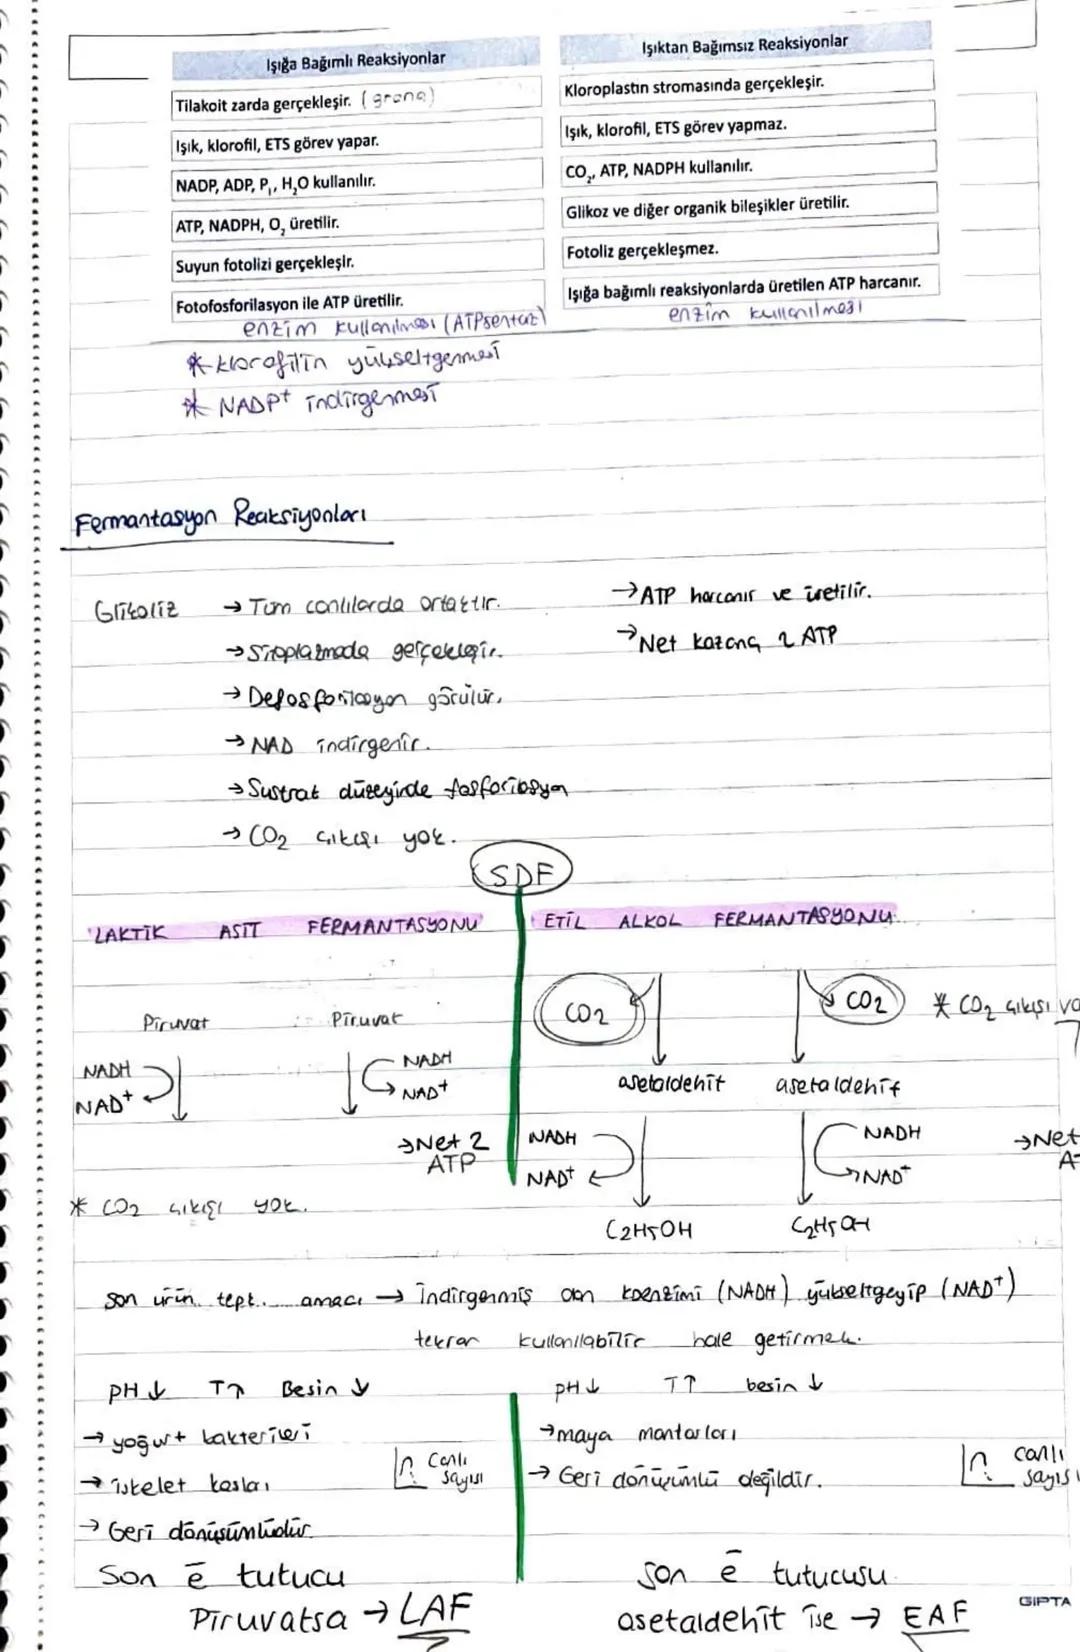 Işığa Bağımlı Reaksiyonlar
Tilakoit zarda gerçekleşir. (grana)
Işık, klorofil, ETS görev yapar.
NADP, ADP, Pᵢ, H₂O kullanılır.
ATP, NADPH, O₂ üretilir.
Suyun fotolizi gerçekleşir.
Fotofosforilasyon ile ATP üretilir.
enzim kullanılması (ATPsentaz)
* klorofilin yükseltgenmesi
* NADP⁺ indirgenmesi
Işıktan Bağımsız Reaksiyonlar
Kloroplastın stromasında gerçekleşir.
Işık, klorofil, ETS görev yapmaz.
CO₂, ATP, NADPH kullanılır.
Glikoz ve diğer organik bileşikler üretilir.
Fotoliz gerçekleşmez.
Işığa bağımlı reaksiyonlarda üretilen ATP harcanır.
enzim kullanılması
Fermantasyon Reaksiyonları
Glikoliz → Tüm canlılarda ortaktır.
→ Sitoplazmada gerçekleşir.
→ Defosforilasyon görülür.
→ NAD indirgenir.
→ Sustrat düzeyinde fosforilasyon
→ CO₂ çıkışı yok.
→ ATP harcanır ve üretilir.
→ Net kazanç 2 ATP
SDF
LAKTİK ASİT FERMANTASYONU
Piruvat Piruvat
NADH NADH
NAD⁺ NAD⁺
→ Net 2
ATP
* CO₂ çıkışı yok.
ETİL ALKOL FERMANTASYONU
CO₂ CO₂ * CO₂ çıkışı va
asetaldehit asetaldehit
NADH NADH → Net
NAD⁺ NAD⁺ A
C₂H₅OH C₂H₅OH
son ürün tept. amacı → İndirgenmiş olan koenzimi (NADH) yükseltgeyip (NAD⁺)
tekrar kullanılabilir hale getirmek.
pH ↓ T↑ Besin ↓
→ yoğurt bakterileri
→ iskelet kasları
→ Geri dönüşümlüdür.
Canlı
sayısı
Son e̅ tutucu
Piruvatsa → LAF
pH ↓ T↑ besin ↓
→ maya mantarları
→ Geri dönüşümlü değildir.
canlı
sayısı
Son e̅ tutucusu
asetaldehit ise → EAF
GIPTA